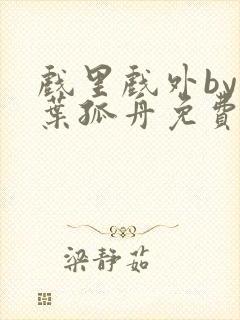 戲里戲外by
葉孤舟免費
梁靜茹